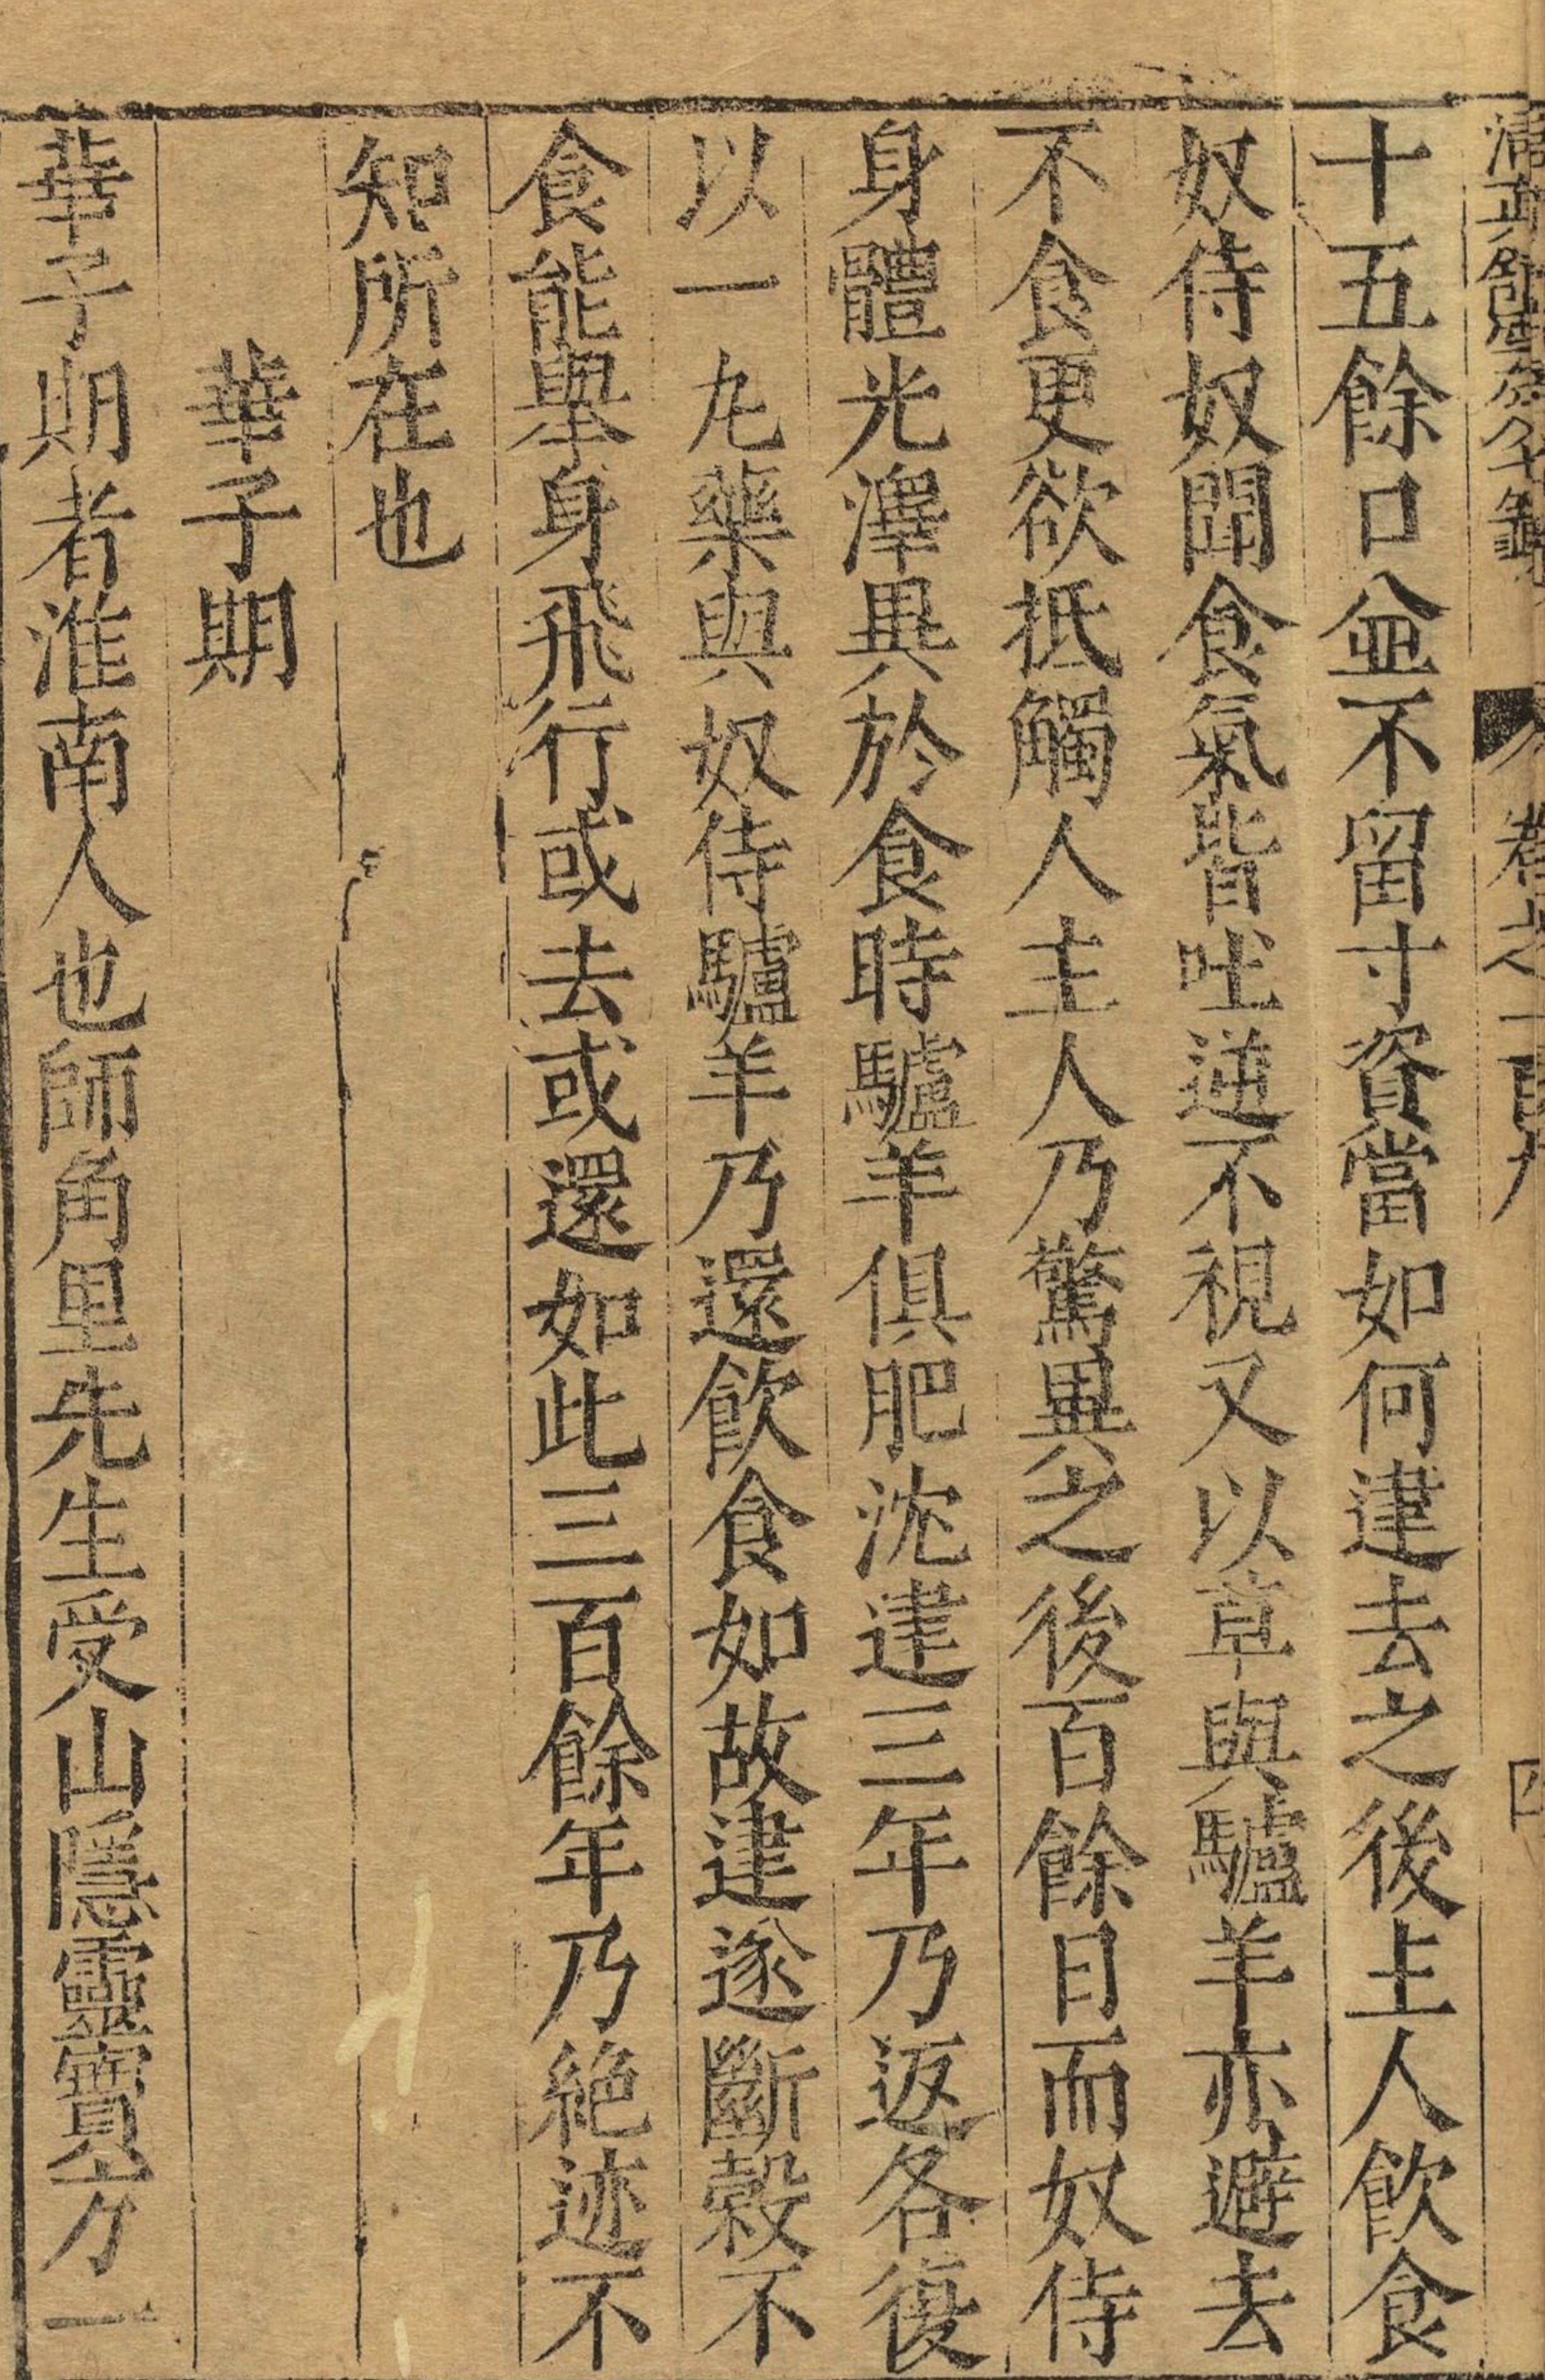 卷之一百九 四
十五餘口並不留寸資當如何建去之後主人飲食
奴侍奴聞食氣皆吐逆不視又以草與驢羊亦避去
不食更欲抵觸人主人乃驚異之後百餘日而奴侍
身體光澤異於食時驢羊俱肥沈建三年乃返各復
以一丸藥與奴侍驢羊乃還飲食如故建遂斷穀不
食能舉身飛行或去或還如此三百餘年乃絕迹不
知所在也
華子期
華子期者淮南人也師角里先生受山隱靈寶方一